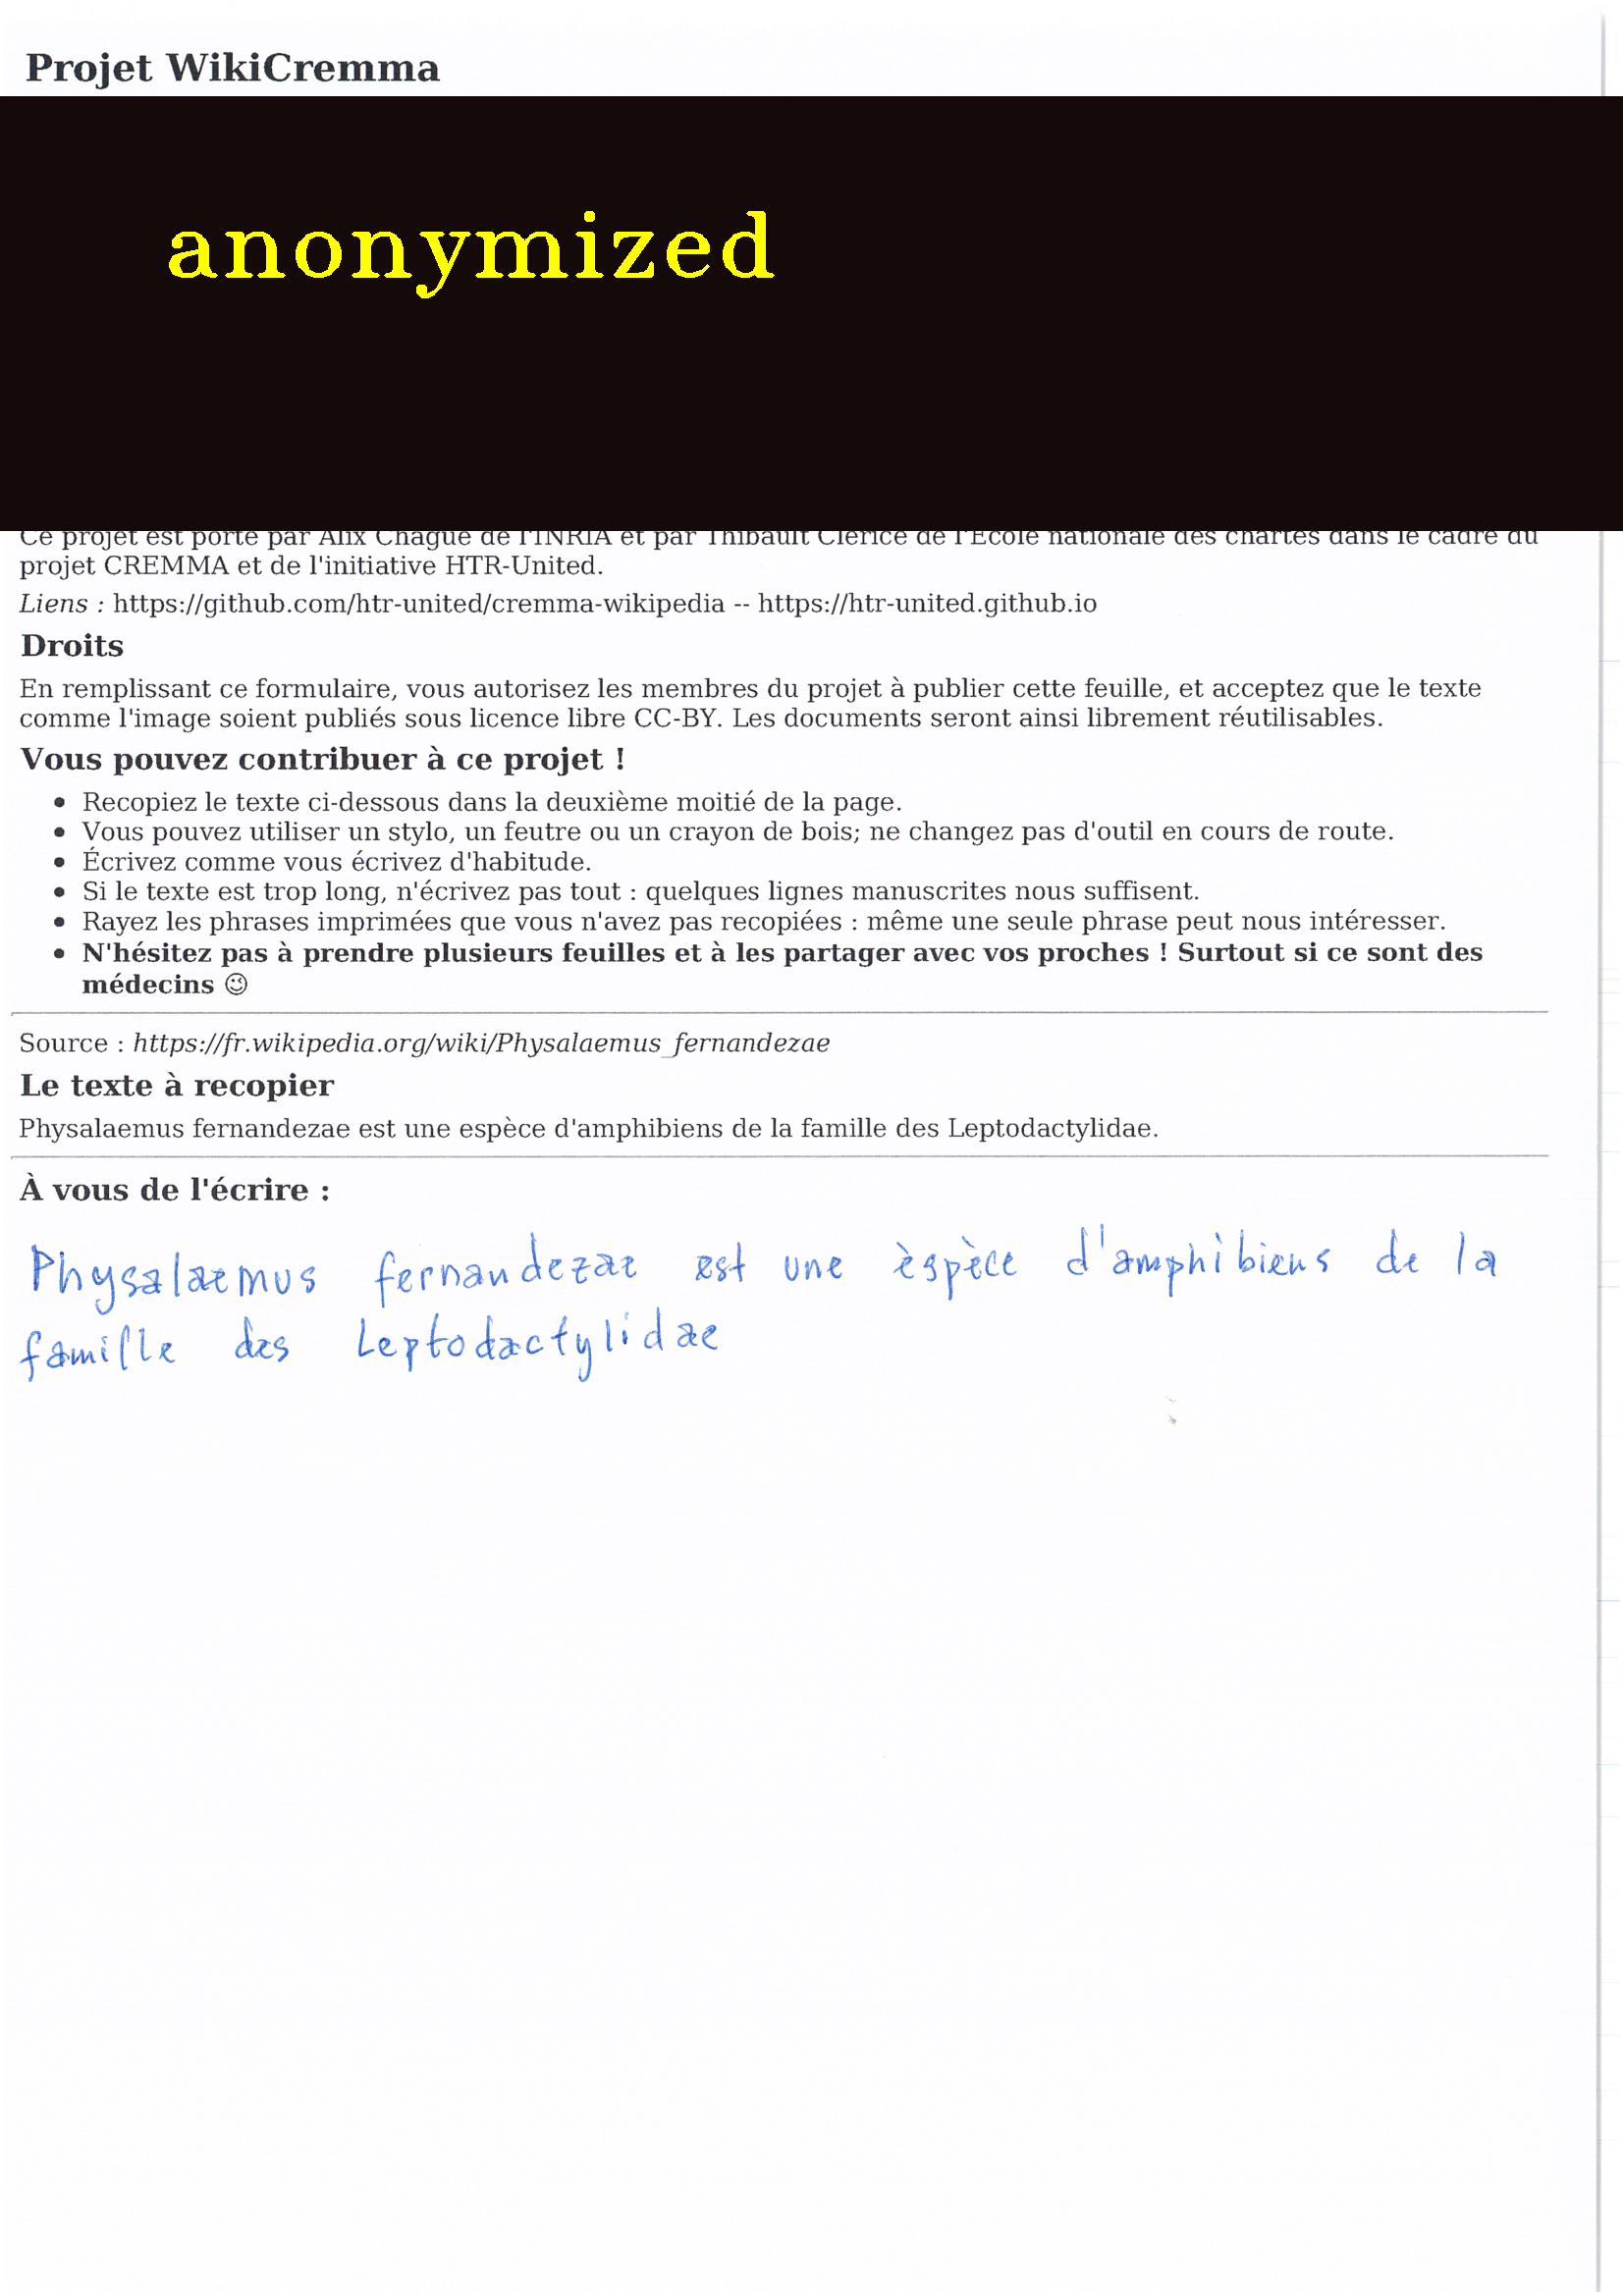 Projet WikiCremma
anonymized
Ce projet est porté par Alix Chagué de l'INRIA et par Thibault Clérice de l'École nationale des chartes dans le cadre du
projet CREMMA et de l'initiative HTR-United.
Liens : https://github.com/htr-united/cremma-wikipedia -- https://htr-united.github.io
Droits
En remplissant ce formulaire, vous autorisez les membres du projet à publier cette feuille, et acceptez que le texte
comme l'image soient publiés sous licence libre CC-BY. Les documents seront ainsi librement réutilisables.
Vous pouvez contribuer à ce projet !
• Recopiez le texte ci-dessous dans la deuxième moitié de la page.
• Vous pouvez utiliser un stylo, un feutre ou un crayon de bois; ne changez pas d'outil en cours de route.
• Écrivez comme vous écrivez d'habitude.
• Si le texte est trop long, n'écrivez pas tout : quelques lignes manuscrites nous suffisent.
• Rayez les phrases imprimées que vous n'avez pas recopiées : même une seule phrase peut nous intéresser.
• N'hésitez pas à prendre plusieurs feuilles et à les partager avec vos proches ! Surtout si ce sont des
médecins 😉
Source : https://fr.wikipedia.org/wiki/Physalaemus_fernandezae
Le texte à recopier
Physalaemus fernandezae est une espèce d'amphibiens de la famille des Leptodactylidae.
À vous de l'écrire :
Physalaemus fernandezae est une èspèce d'amphibiens de la
famille des Leptodactylidae